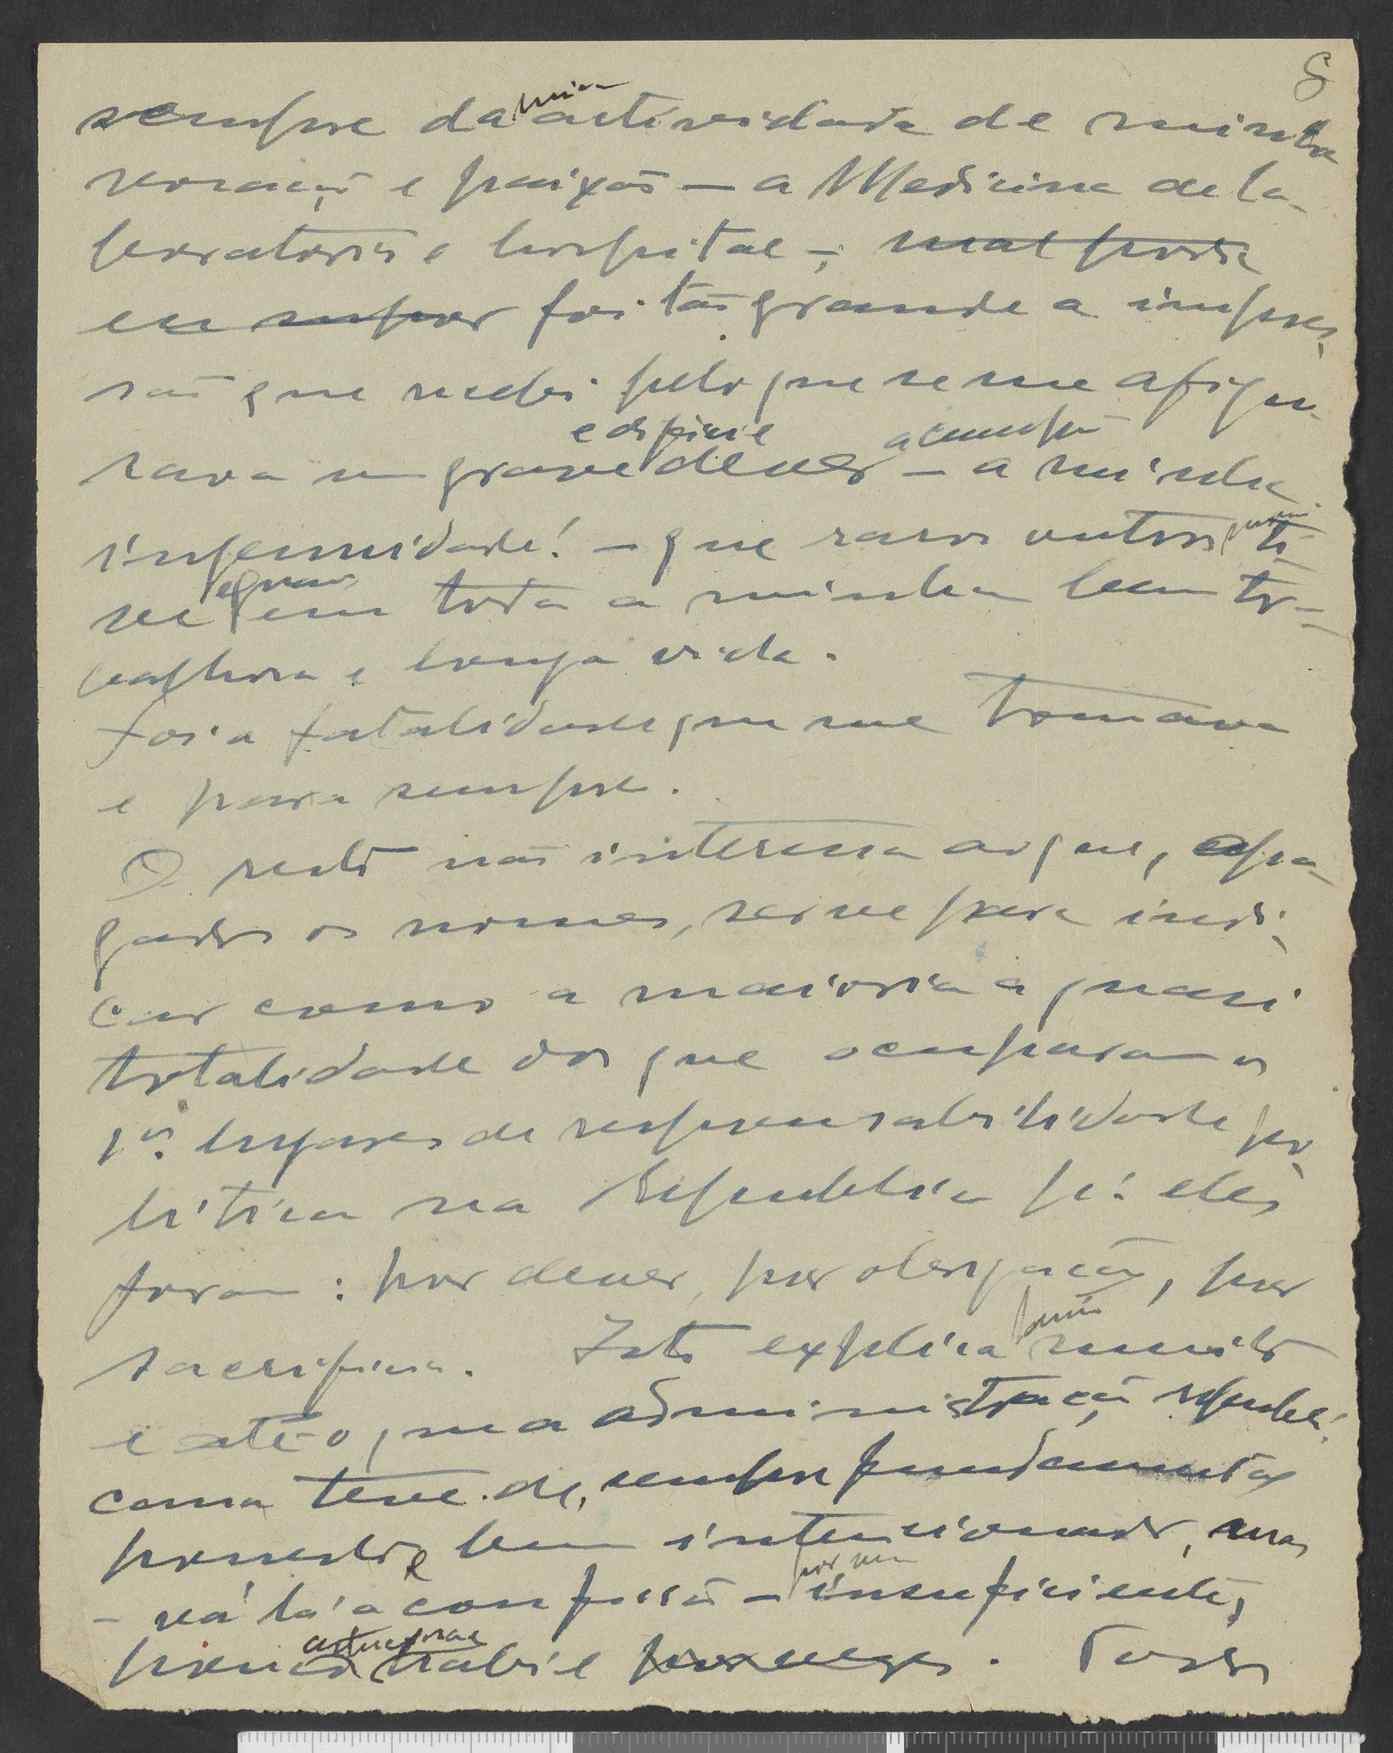 8
sempre da minha actividade de minha
vocação e paixão — a Medicina de la-
boratorio e hospital —; mal podia
eu supor foi tão grande a impres-
são que recebi pelo que se me afigu-
rava um grave e dificil dever — a
minha
infermidade! — que raros outros
ve em toda a minha bem tra-
balhosa e longa vida.
Foi a fatalidade que me tomava
e para sempre.
O resto não interessa ao que, apa-
gados os nomes, serve para indi-
car como a maioria a quasi
totalidade dos que ocuparam os
1os. lugares de responsabilidade po-
litica na Republica p.ª eles
foram: por dever, por obrigação, por
sacrificio. Isto explica muito
e até o que a administração republi-
cana teve de, sempre fundamental
honesto e bem intencionado, mas
— vá lá a confissão — por vezes insuficiente,
pouco habil e por vezes. Todos